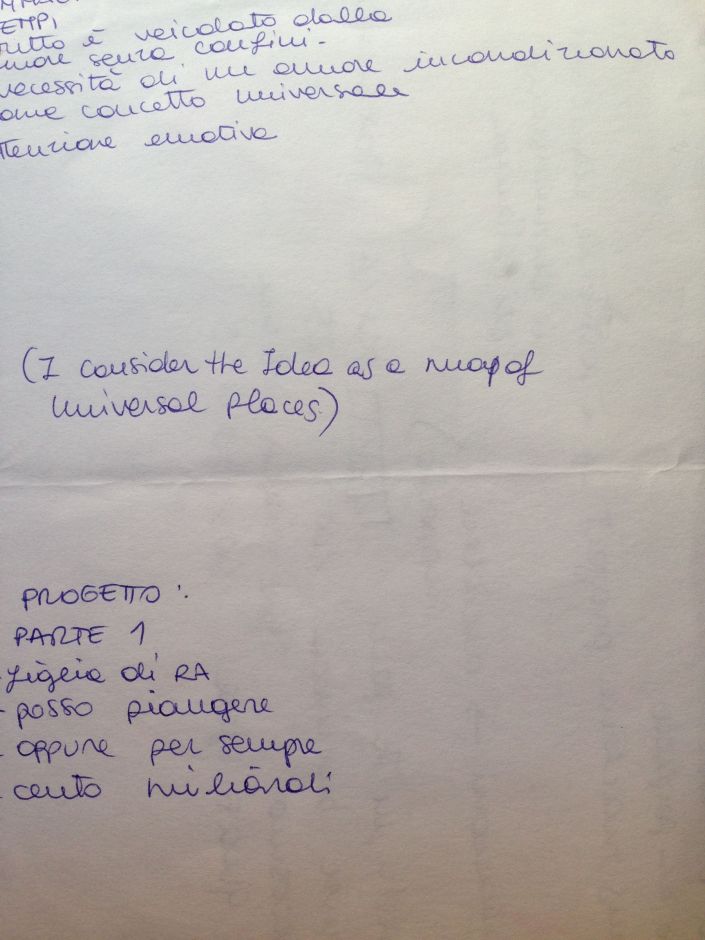 EMPI
tutto è veicolato dalla
more senza confini.
necessità di un amore incondizionato
ome concetto universale
ttenzione emotiva
(I consider the Idea as a map of
universal places)
PROGETTO:
PARTE 1
- figlia di RA
- posso piangere
- oppure per sempre
- cento miliardi